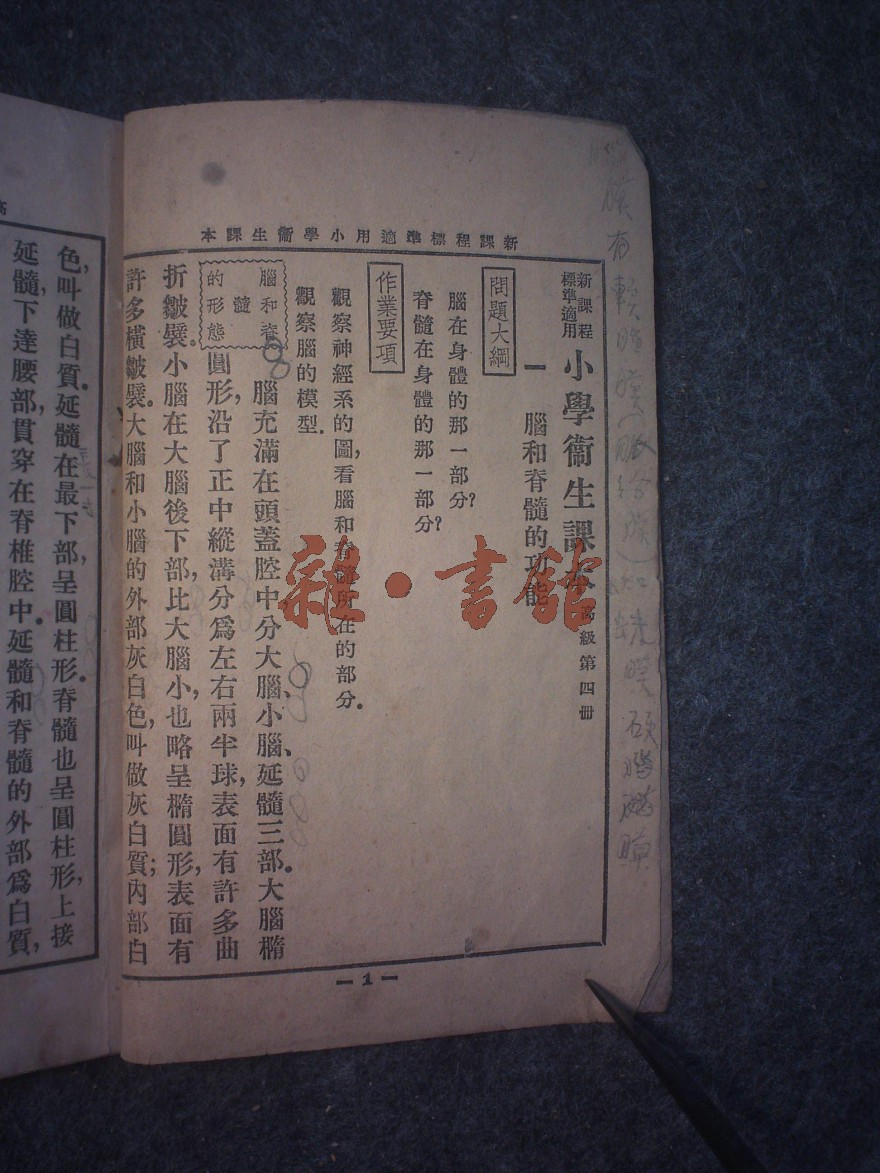 新課程標準適用小學衞生課本
新課程
標準適用
小學衞生課本
高級第四册
一　腦和脊髓的功能
問題大綱
腦在身體的那一部分?
脊髓在身體的那一部分?
作業要項
觀察神經系的圖,看腦和脊髓所在的部分.
觀察腦的模型.
腦和脊
髓
的形態
腦充滿在頭蓋腔中,分大腦、小腦、延髓三部.大腦橢
圓形,沿了正中縱溝分爲左右兩半球,表面有許多曲
折皺襞.小腦在大腦後下部,比大腦小,也略呈橢圓形,表面有
許多橫皺襞.大腦和小腦的外部灰白色,叫做灰白質;內部白
— 1 —
色,叫做白質.延髓在最下部,呈圓柱形.脊髓也呈圓柱形,上接
延髓,下達腰部,貫穿在脊椎腔中.延髓和脊髓的外部爲白質,
雜·書館